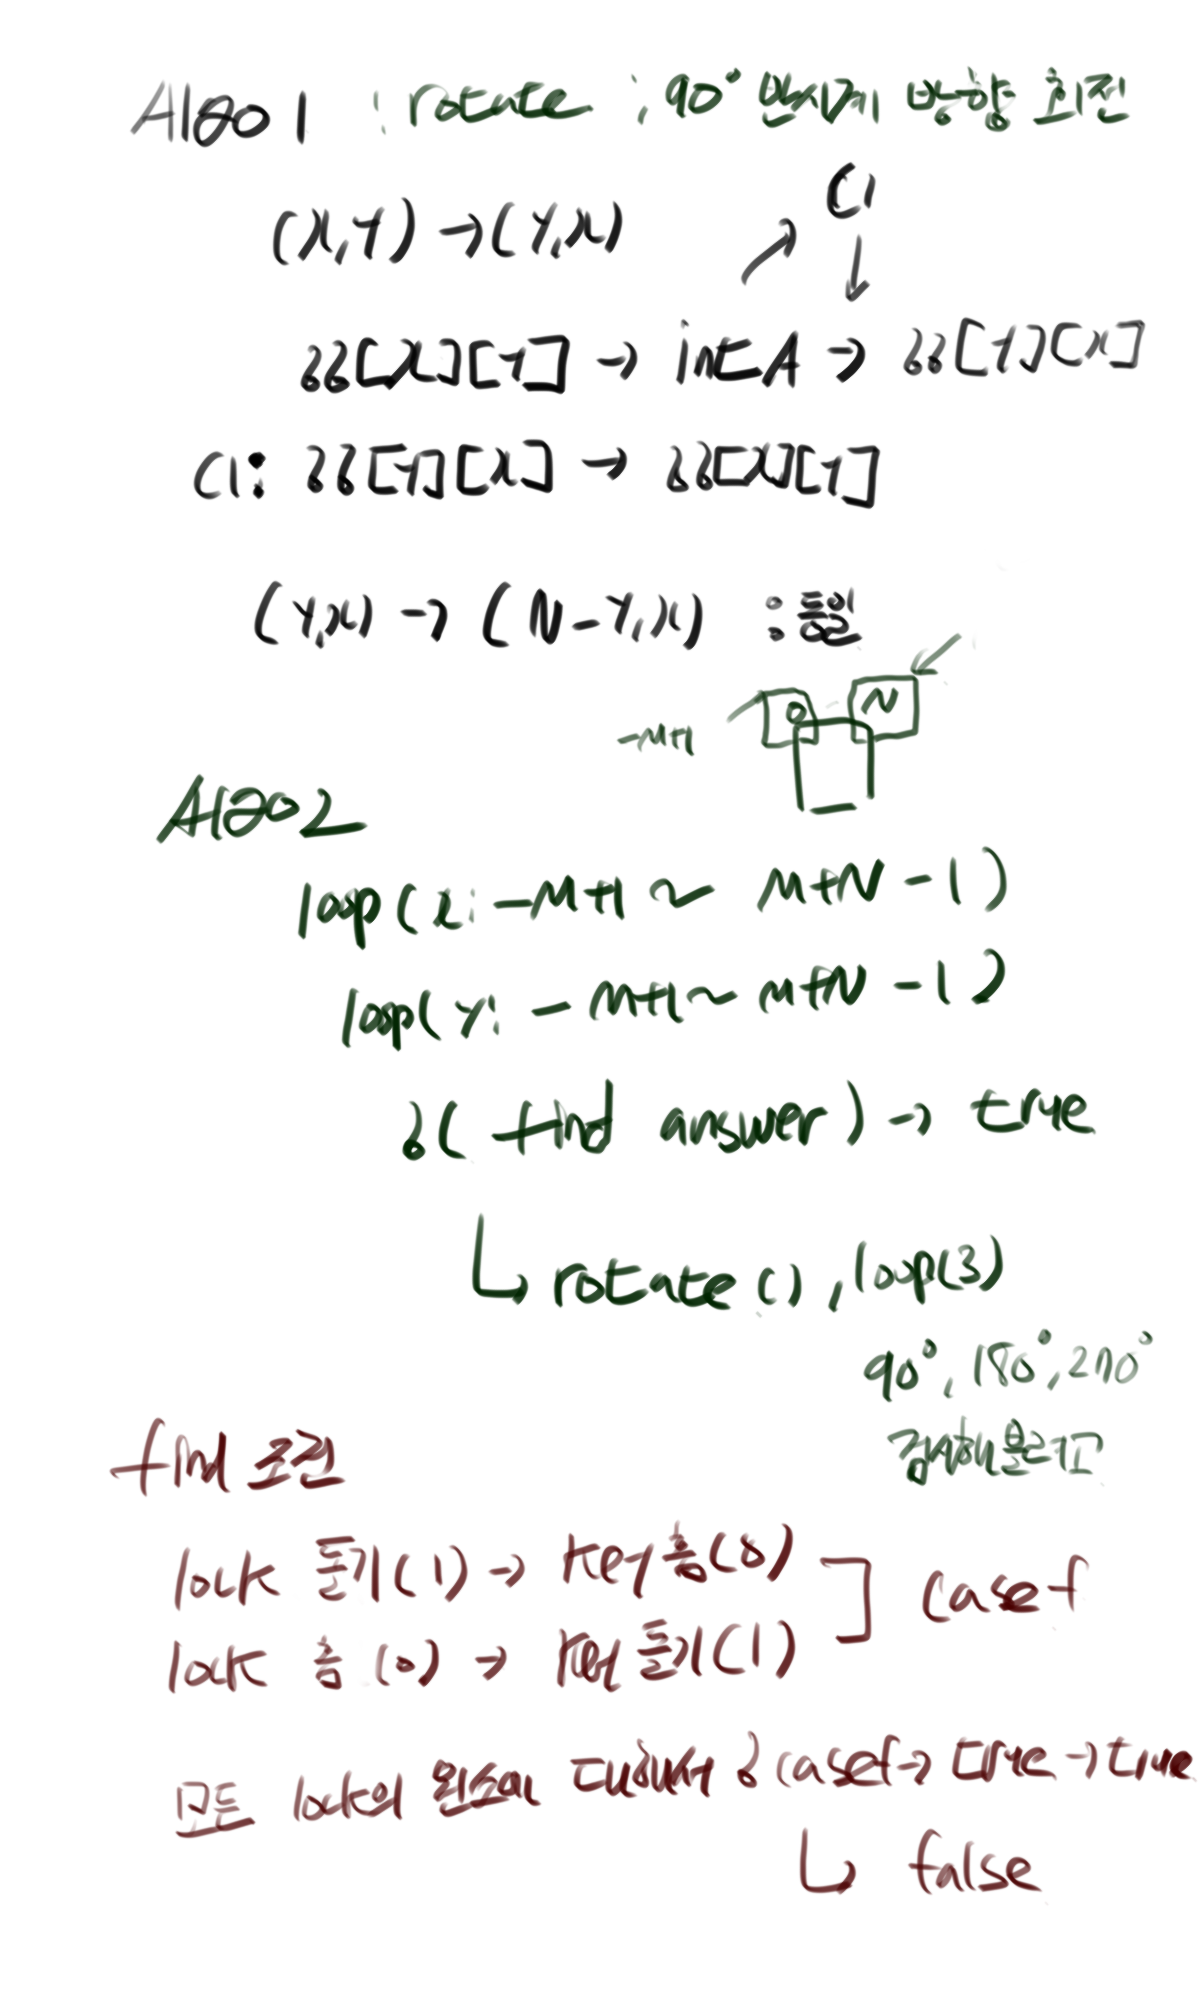 Algo 1 : rotate ; 90° 반시계 방향 회전
(x,y) → (y,x)
C1
공공[x][y] → int A → 공공[y][x]
C1: 공공[y][x] → 공공[x][y]
(y,x) → (N-y,x) : 동일
0 N
-M+1
Algo2
loop(x: -M+1 ~ M+N-1)
loop(y: -M+1 ~ M+N-1)
(find answer) → true
↳ rotate(), loop(3)
90°, 180°, 270°
검사해볼려고
find 조건
lock 돌기(1) → key 홈(0)
] case f
lock 홈(0) → key 돌기(1)
모든 lock의 원소에 대해서 (case f → true → true
↳ false